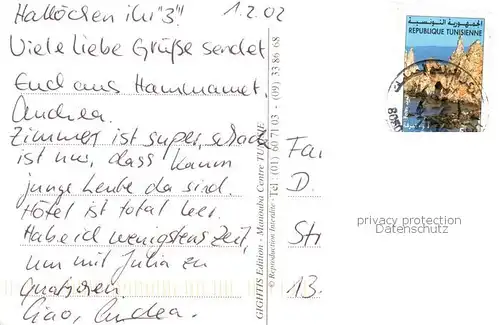 Hallöchen ihr "3"! 1.2.02
Viele liebe Grüße sendet
Euch aus Hammamet.
Andrea.
Zimmer ist super, schade
ist nur, dass kaum
junge Leute da sind.
Hotel ist total leer.
Hab eich wenigstens Zeit,
um mit Julia zu
quatschen.
Ciao, Andrea.
GIGHTIS Edition - Manouba Centre TUNISIE
© Reproduction Interdite - Tel : (01) 60 71 03 - (09) 33 86 68
الجمهورية التونسية
REPUBLIQUE TUNISIENNE
Fa
D.
St
13.
privacy protection
Datenschutz